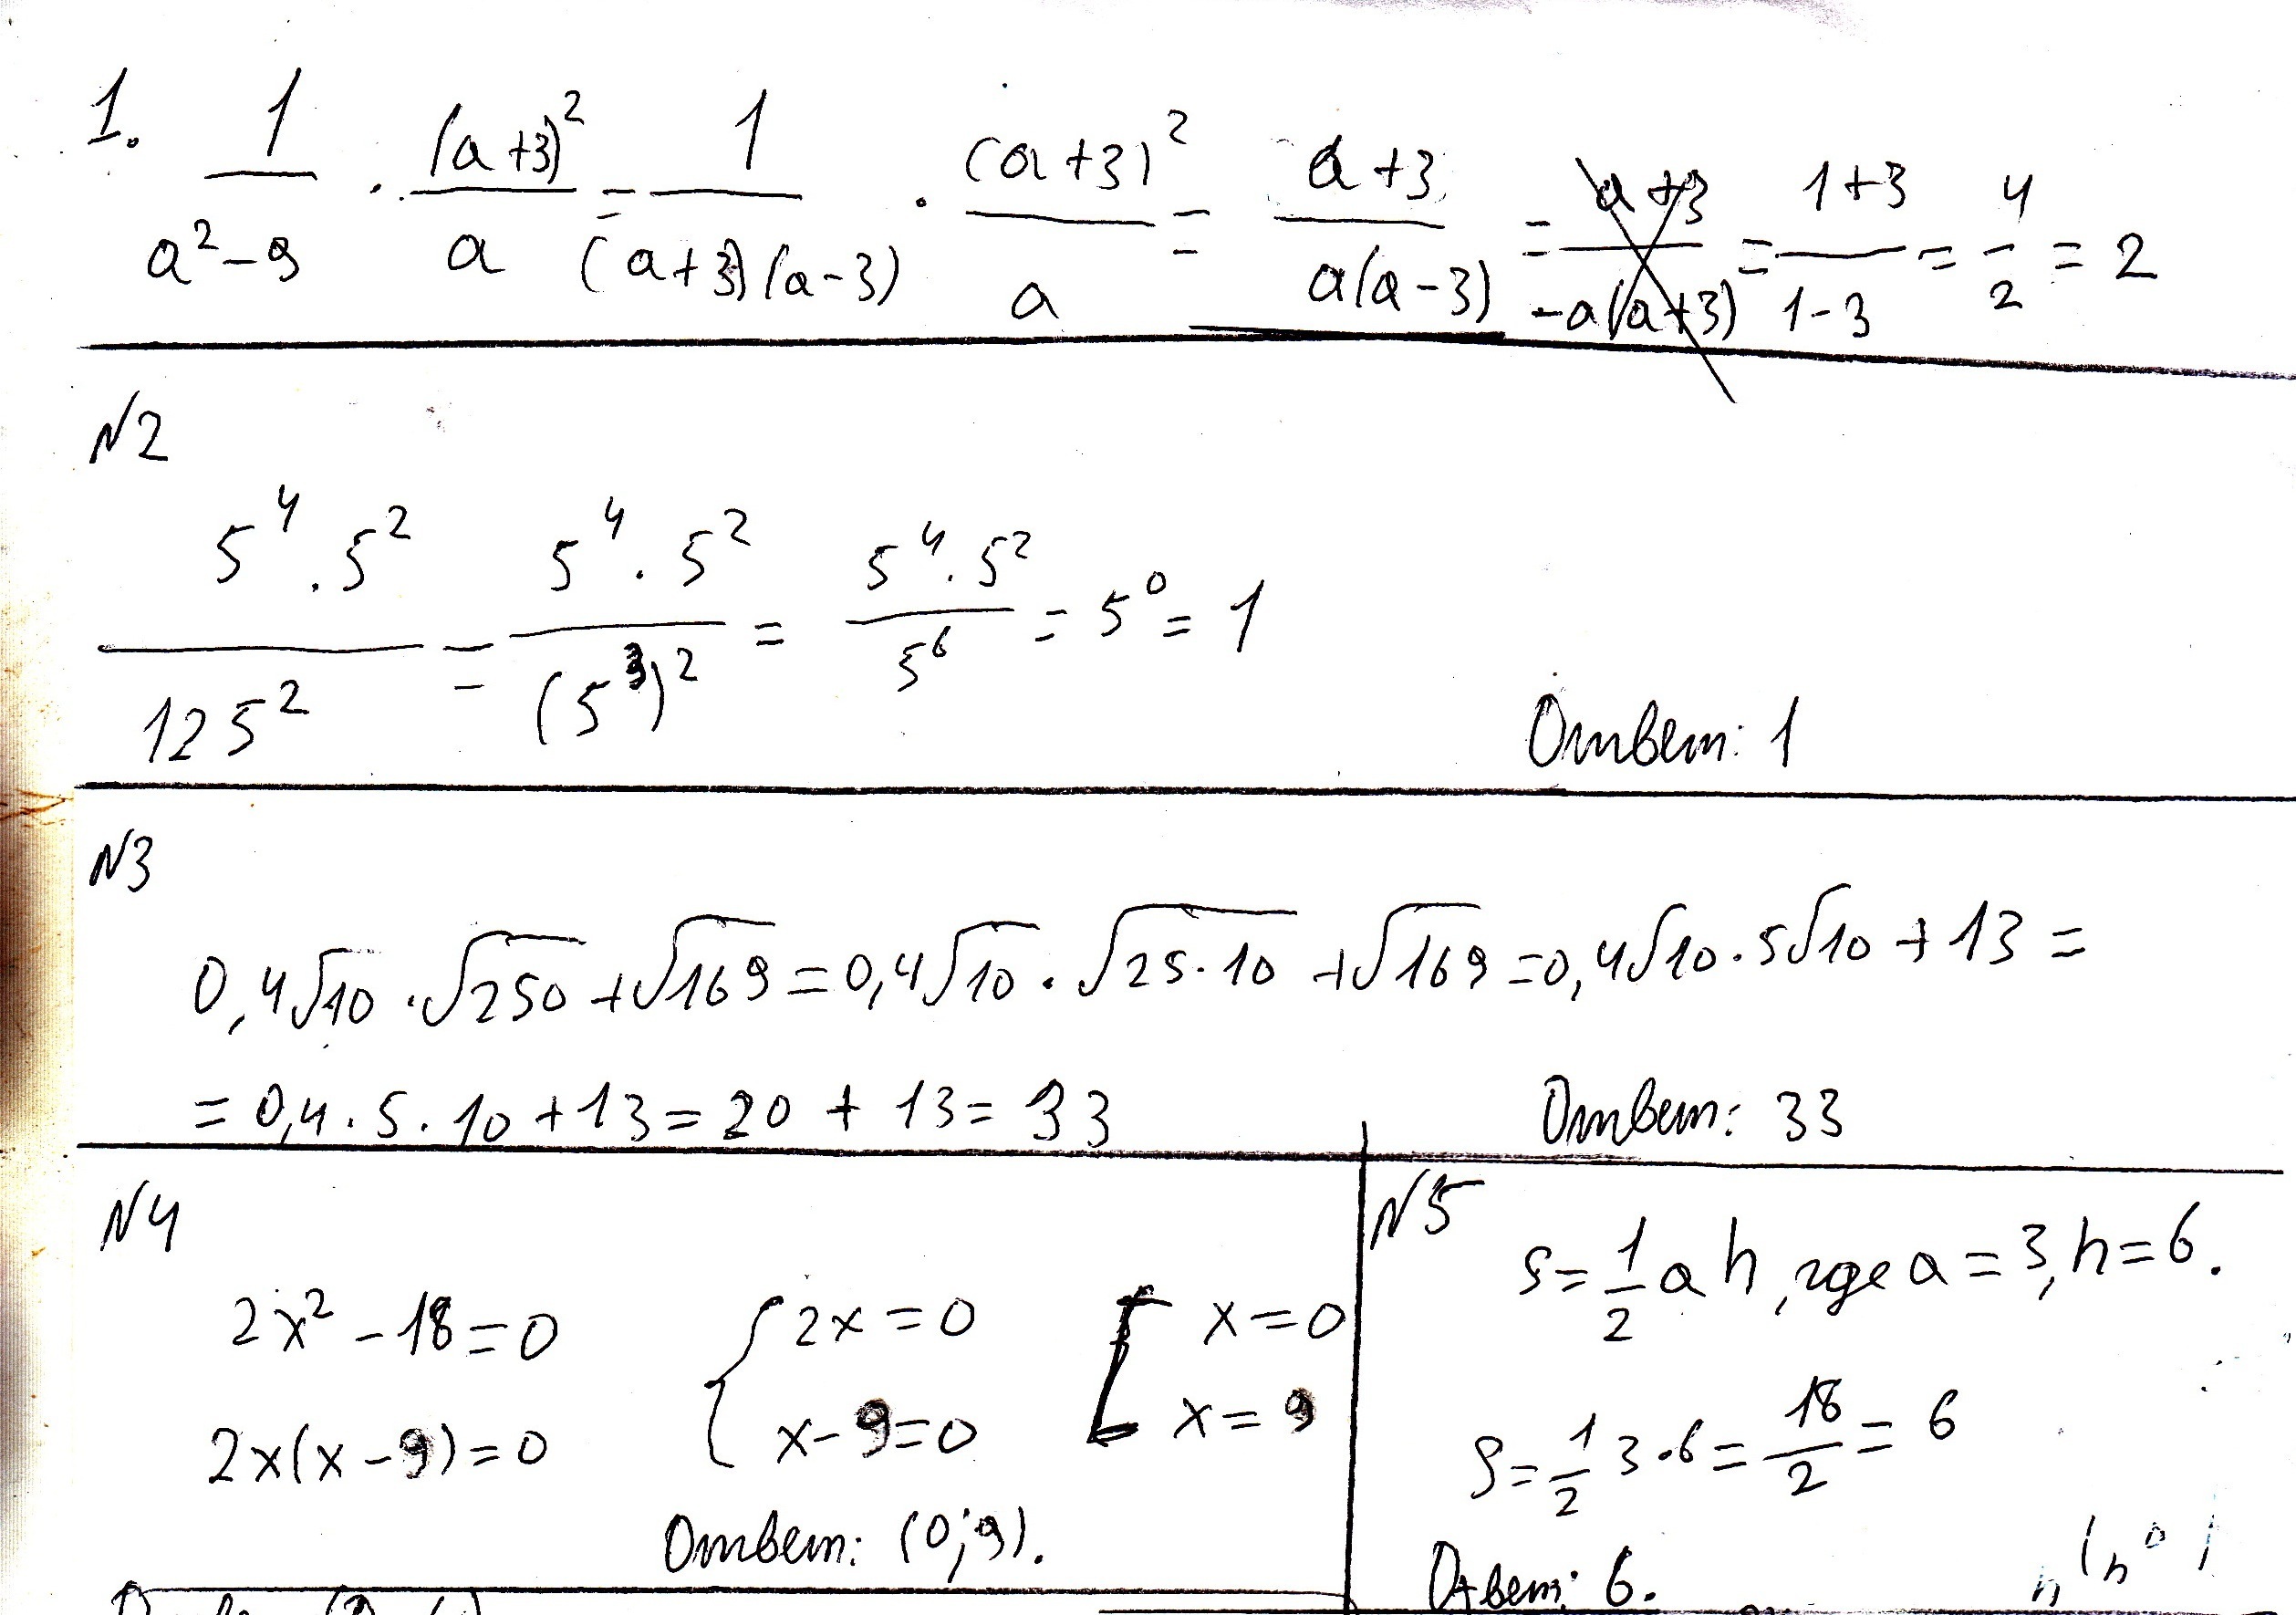 1. 1/(a²-9) · (a+3)²/a = 1/((a+3)(a-3)) · (a+3)²/a = (a+3)/(a(a-3)) = (a+3)/(-a(a+3)) = (1+3)/(1-3) = 4/2 = 2
N2
(5⁴ · 5²)/125² = (5⁴ · 5²)/(5³)² = (5⁴ · 5²)/5⁶ = 5⁰ = 1
Ответ: 1
N3
0,4√10 · √250 + √169 = 0,4√10 · √25·10 + √169 = 0,4√10 · 5√10 + 13 =
= 0,4 · 5 · 10 + 13 = 20 + 13 = 33
Ответ: 33
N4
2x² - 18 = 0
2x(x - 9) = 0
{ 2x = 0
x - 9 = 0
[ x = 0
x = 9
Ответ: (0; 9).
N5
S = 1/2 a h, где a = 3, h = 6.
S = 1/2 3 · 6 = 18/2 = 6
Ответ: 6.